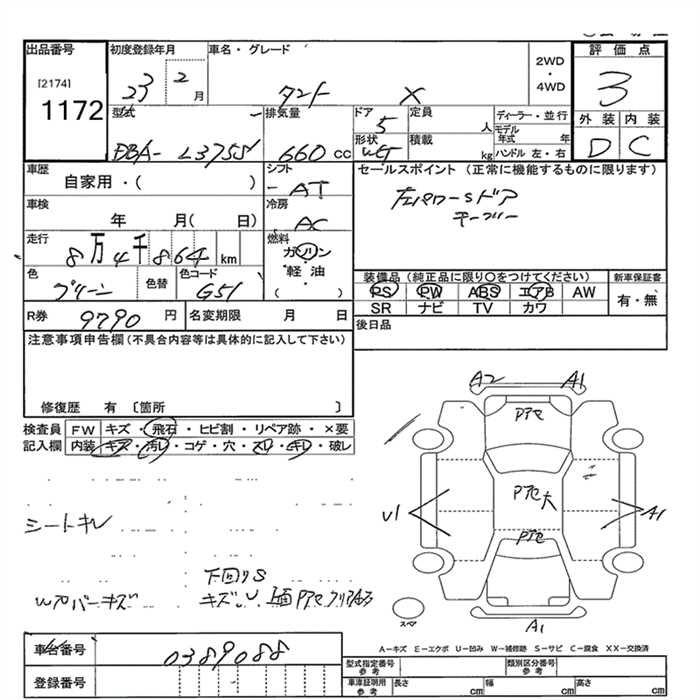 出品番号
[2174]
1172
初度登録年月
23 2 月
車名・グレード
タント X
2WD
・
4WD
評価点
3
外装 内装
D C
型式
DBA- L375S
排気量
660 cc
ドア
5
形状
定員
人
積載
kg
ディーラー・並行
モデル年式 年
ハンドル 左・右
車歴
自家用・( )
シフト
- AT
セールスポイント (正常に機能するものに限ります)
左パワーSドア
キーフリー
車検
年 月( 日)
冷房
AC
走行
8万4千864 km
燃料
ガソリン
・
軽油
( )
色
グリーン
色替
色コード
G51
装備品 (純正品に限り○をつけてください)
PS PW ABS エアB AW
SR ナビ TV カワ
新車保証書
有・無
R券
9790 円
名変期限 月 日
後日品
注意事項申告欄(不具合内容等は具体的に記入して下さい)
修復歴 有 〔箇所 〕
検査員
記入欄
FW キズ・飛石・ヒビ割・リペア跡・×要
内装 キズ・汚レ・コゲ・穴・スレ・キレ・破レ
シートキレ
下回りS
A2 A1
U1
A1
A1
スペア
A-キズ E-エクボ U-凹み W-補修跡 S-サビ C-腐食 XX-交換済
車台番号
0389088
登録番号
型式指定番号
参考
類別区分番号
参考
車庫証明用
参考
長さ cm
幅 cm
高さ cm